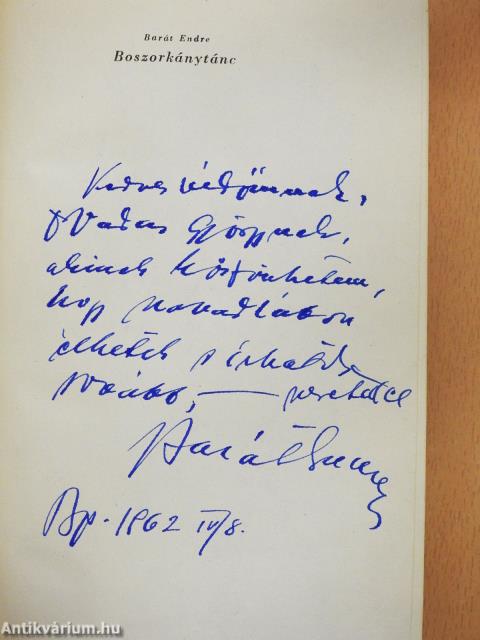 Barát Endre
Boszorkánytánc
Kedves
Vadas Györgynek,
akinek köszönhetem,
hogy
élhetek s írhatok
tovább, — szeretettel
Barát Endre
Bp. 1962 IV/8.
Antikvárium.hu